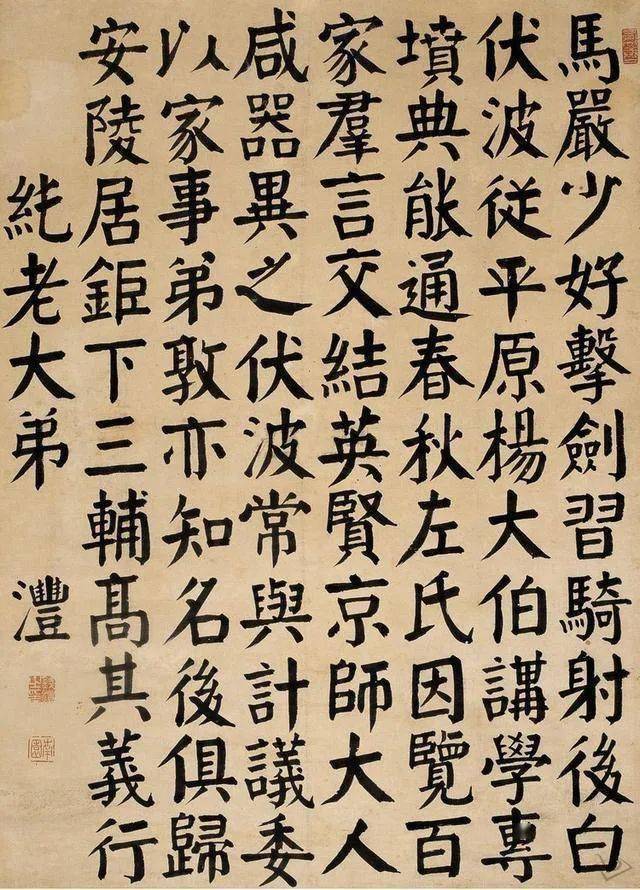 馬嚴少好擊劍習騎射後白
伏波從平原楊大伯講學專
墳典能通春秋左氏因覽百
家羣言交結英賢京師大人
咸器異之伏波常與計議委
以家事弟敦亦知名後俱歸
安陵居鉅下三輔髙其義行
純老大弟 灃